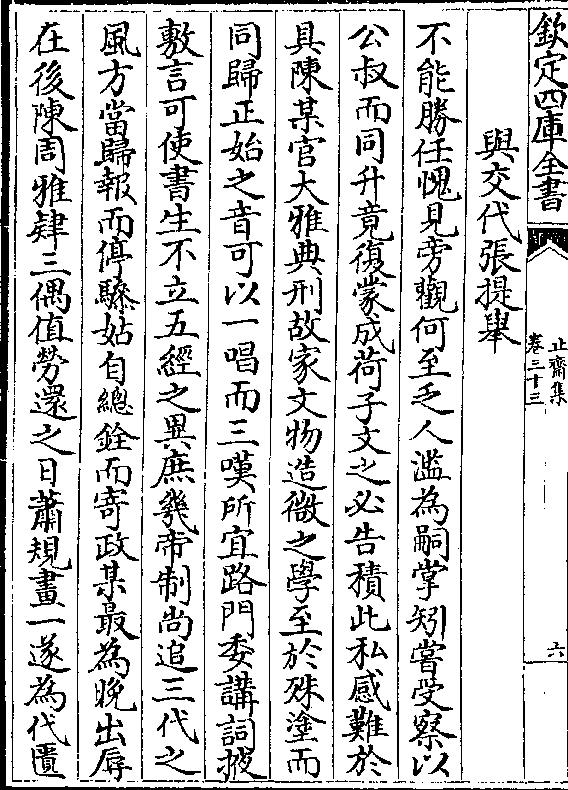 欽定四庫全書
止齋集
卷三十三
六
與交代張提舉
不能勝任愧見旁觀何至乏人濫為嗣掌矧嘗受察以
公叔而同升竟復蒙成荷子文之必告積此私感難於
具陳某官大雅典刑故家文物造微之學至於殊塗而
同歸正始之音可以一唱而三嘆所宜路門委講詞掖
敷言可使書生不立五經之異庶幾帝制尚追三代之
風方當歸報而停驂姑自總銓而寄政某最為晚出辱
在後陳周雅肄三偶值勞還之日蕭規畫一遂為代匱